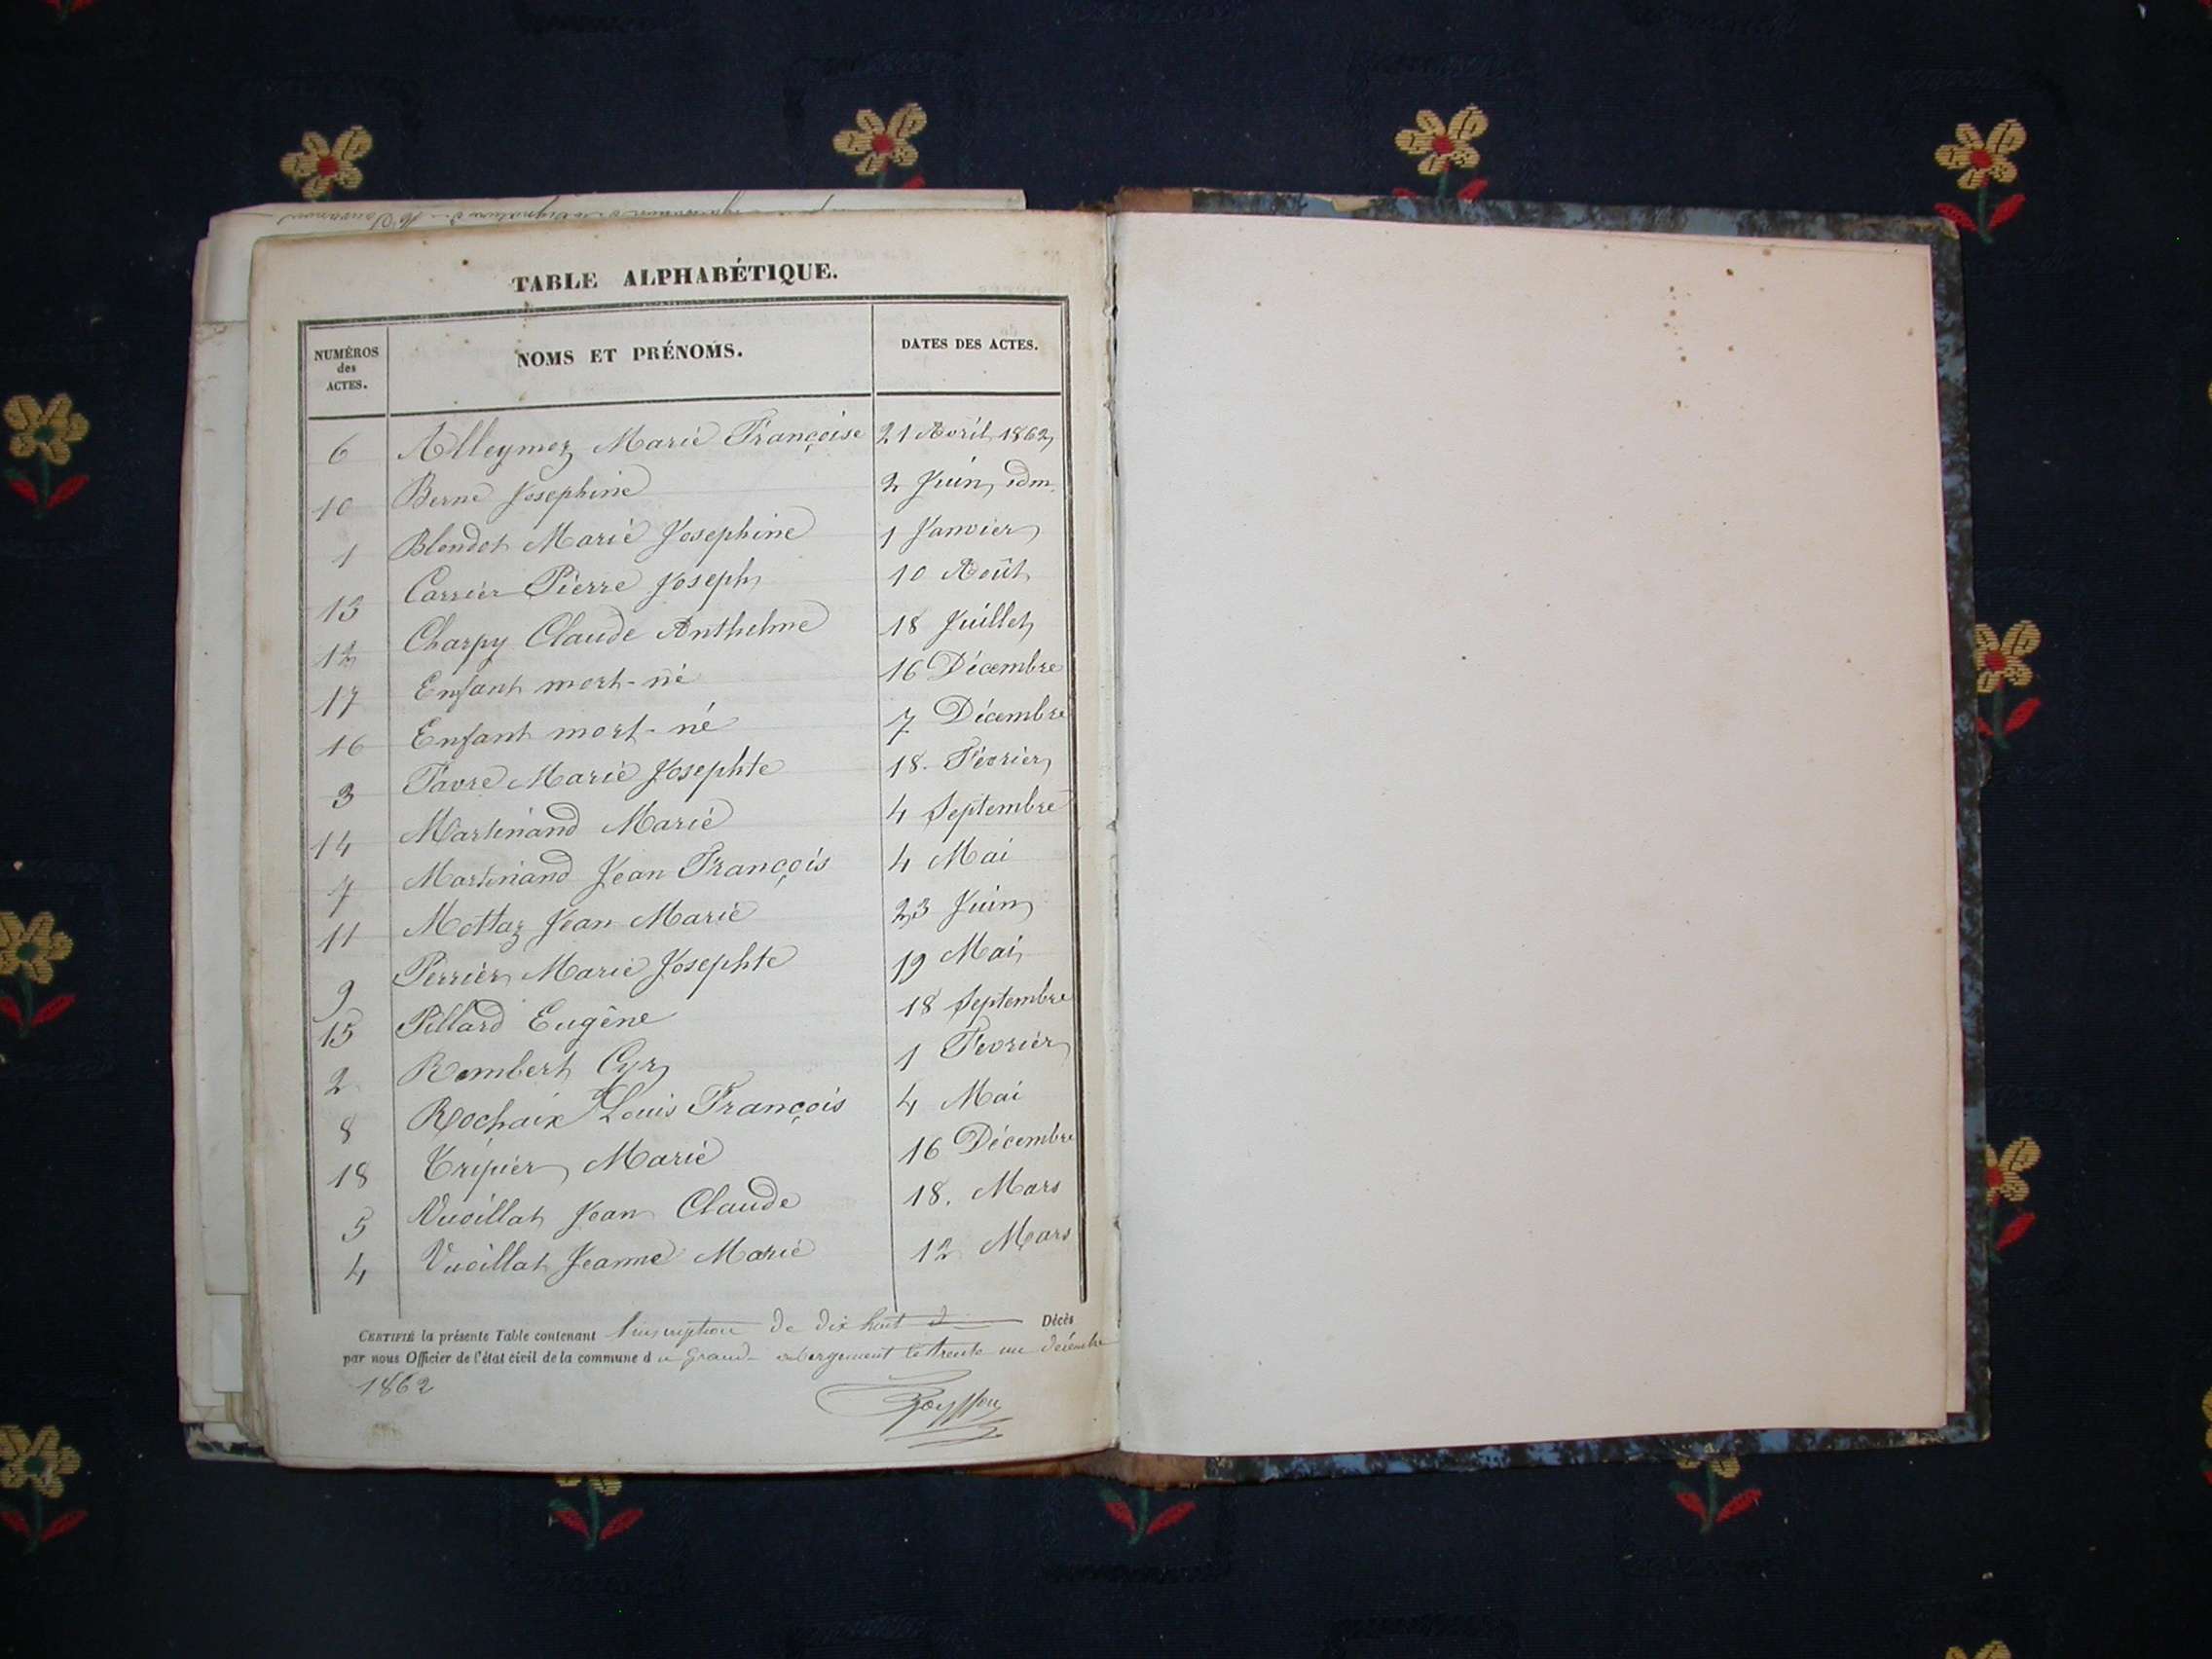 TABLE ALPHABÉTIQUE.
NUMÉROS des ACTES. NOMS ET PRÉNOMS. DATES DES ACTES.
6 Alleymoz Marie Françoise 21 Avril 1862
10 Berne Josephine 2 Juin, idm.
1 Blondot Marie Josephine 1 Janvier
13 Carrier Pierre Joseph 10 Août
12 Charpy Claude Anthelme 18 Juillet
17 Enfant mort-né 16 Décembre
16 Enfant mort-né 7 Décembre
3 Favre Marie Josephte 18. Février
14 Martinand Marie 4 Septembre
7 Martinand Jean François 4 Mai
11 Mottaz Jean Marie 23 Juin
9 Perrier Marie Josephte 19 Mai
15 Pillard Eugène 18 Septembre
2 Rembert Cyr 1 Fevrier
8 Rochaix Louis François 4 Mai
18 Tripier Marie 16 Décembre
5 Vuaillat Jean Claude 18. Mars
4 Vuaillat Jeanne Marie 12 Mars
CERTIFIÉ la présente Table contenant l'inscription de dix huit Décès
par nous Officier de l'état civil de la commune du Grand-abergement le trente un décembre
1862